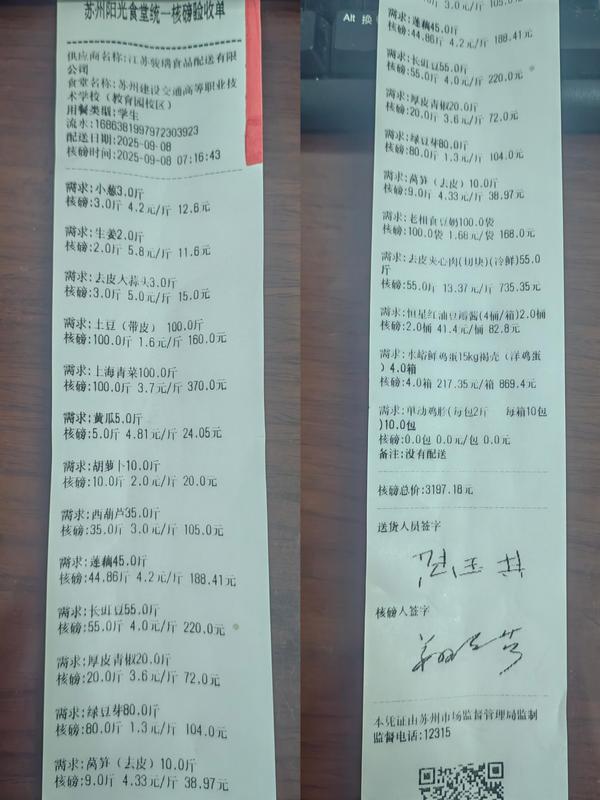 苏州阳光食堂统一核磅验收单
供应商名称:江苏骏瑞食品配送有限
公司
食堂名称:苏州建设交通高等职业技
术学校（教育园校区）
用餐类型:学生
流水:1686381997972303923
配送日期:2025-09-08
核磅时间:2025-09-08 07:16:43
需求:小葱3.0斤
核磅:3.0斤 4.2元/斤 12.6元
需求:生姜2.0斤
核磅:2.0斤 5.8元/斤 11.6元
需求:去皮大蒜头3.0斤
核磅:3.0斤 5.0元/斤 15.0元
需求:土豆（带皮） 100.0斤
核磅:100.0斤 1.6元/斤 160.0元
需求:上海青菜100.0斤
核磅:100.0斤 3.7元/斤 370.0元
需求:黄瓜5.0斤
核磅:5.0斤 4.81元/斤 24.05元
需求:胡萝卜10.0斤
核磅:10.0斤 2.0元/斤 20.0元
需求:西葫芦35.0斤
核磅:35.0斤 3.0元/斤 105.0元
需求:莲藕45.0斤
核磅:44.86斤 4.2元/斤 188.41元
需求:长豇豆55.0斤
核磅:55.0斤 4.0元/斤 220.0元
需求:厚皮青椒20.0斤
核磅:20.0斤 3.6元/斤 72.0元
需求:绿豆芽80.0斤
核磅:80.0斤 1.3元/斤 104.0元
需求:莴笋（去皮）10.0斤
核磅:9.0斤 4.33元/斤 38.97元
Alt 换
3.0元/斤 105.0
需求:莲藕45.0斤
核磅:44.86斤 4.2元/斤 188.41元
需求:长豇豆55.0斤
核磅:55.0斤 4.0元/斤 220.0元
需求:厚皮青椒20.0斤
核磅:20.0斤 3.6元/斤 72.0元
需求:绿豆芽80.0斤
核磅:80.0斤 1.3元/斤 104.0元
需求:莴笋（去皮）10.0斤
核磅:9.0斤 4.33元/斤 38.97元
需求:老相食豆奶100.0袋
核磅:100.0袋 1.68元/袋 168.0元
需求:去皮夹心肉(切块)(冷鲜)55.0
斤
核磅:55.0斤 13.37元/斤 735.35元
需求:恒星红油豆瓣酱(4桶/箱)2.0桶
核磅:2.0桶 41.4元/桶 82.8元
需求:水峪鲜鸡蛋15kg褐壳（洋鸡蛋
）4.0箱
核磅:4.0箱 217.35元/箱 869.4元
需求:单动鸡肫(每包2斤 每箱10包
)10.0包
核磅:0.0包 0.0元/包 0.0元
备注:没有配送
核磅总价:3197.18元
送货人员签字
核磅人签字
本凭证由苏州市场监督管理局监制
监督电话:12315